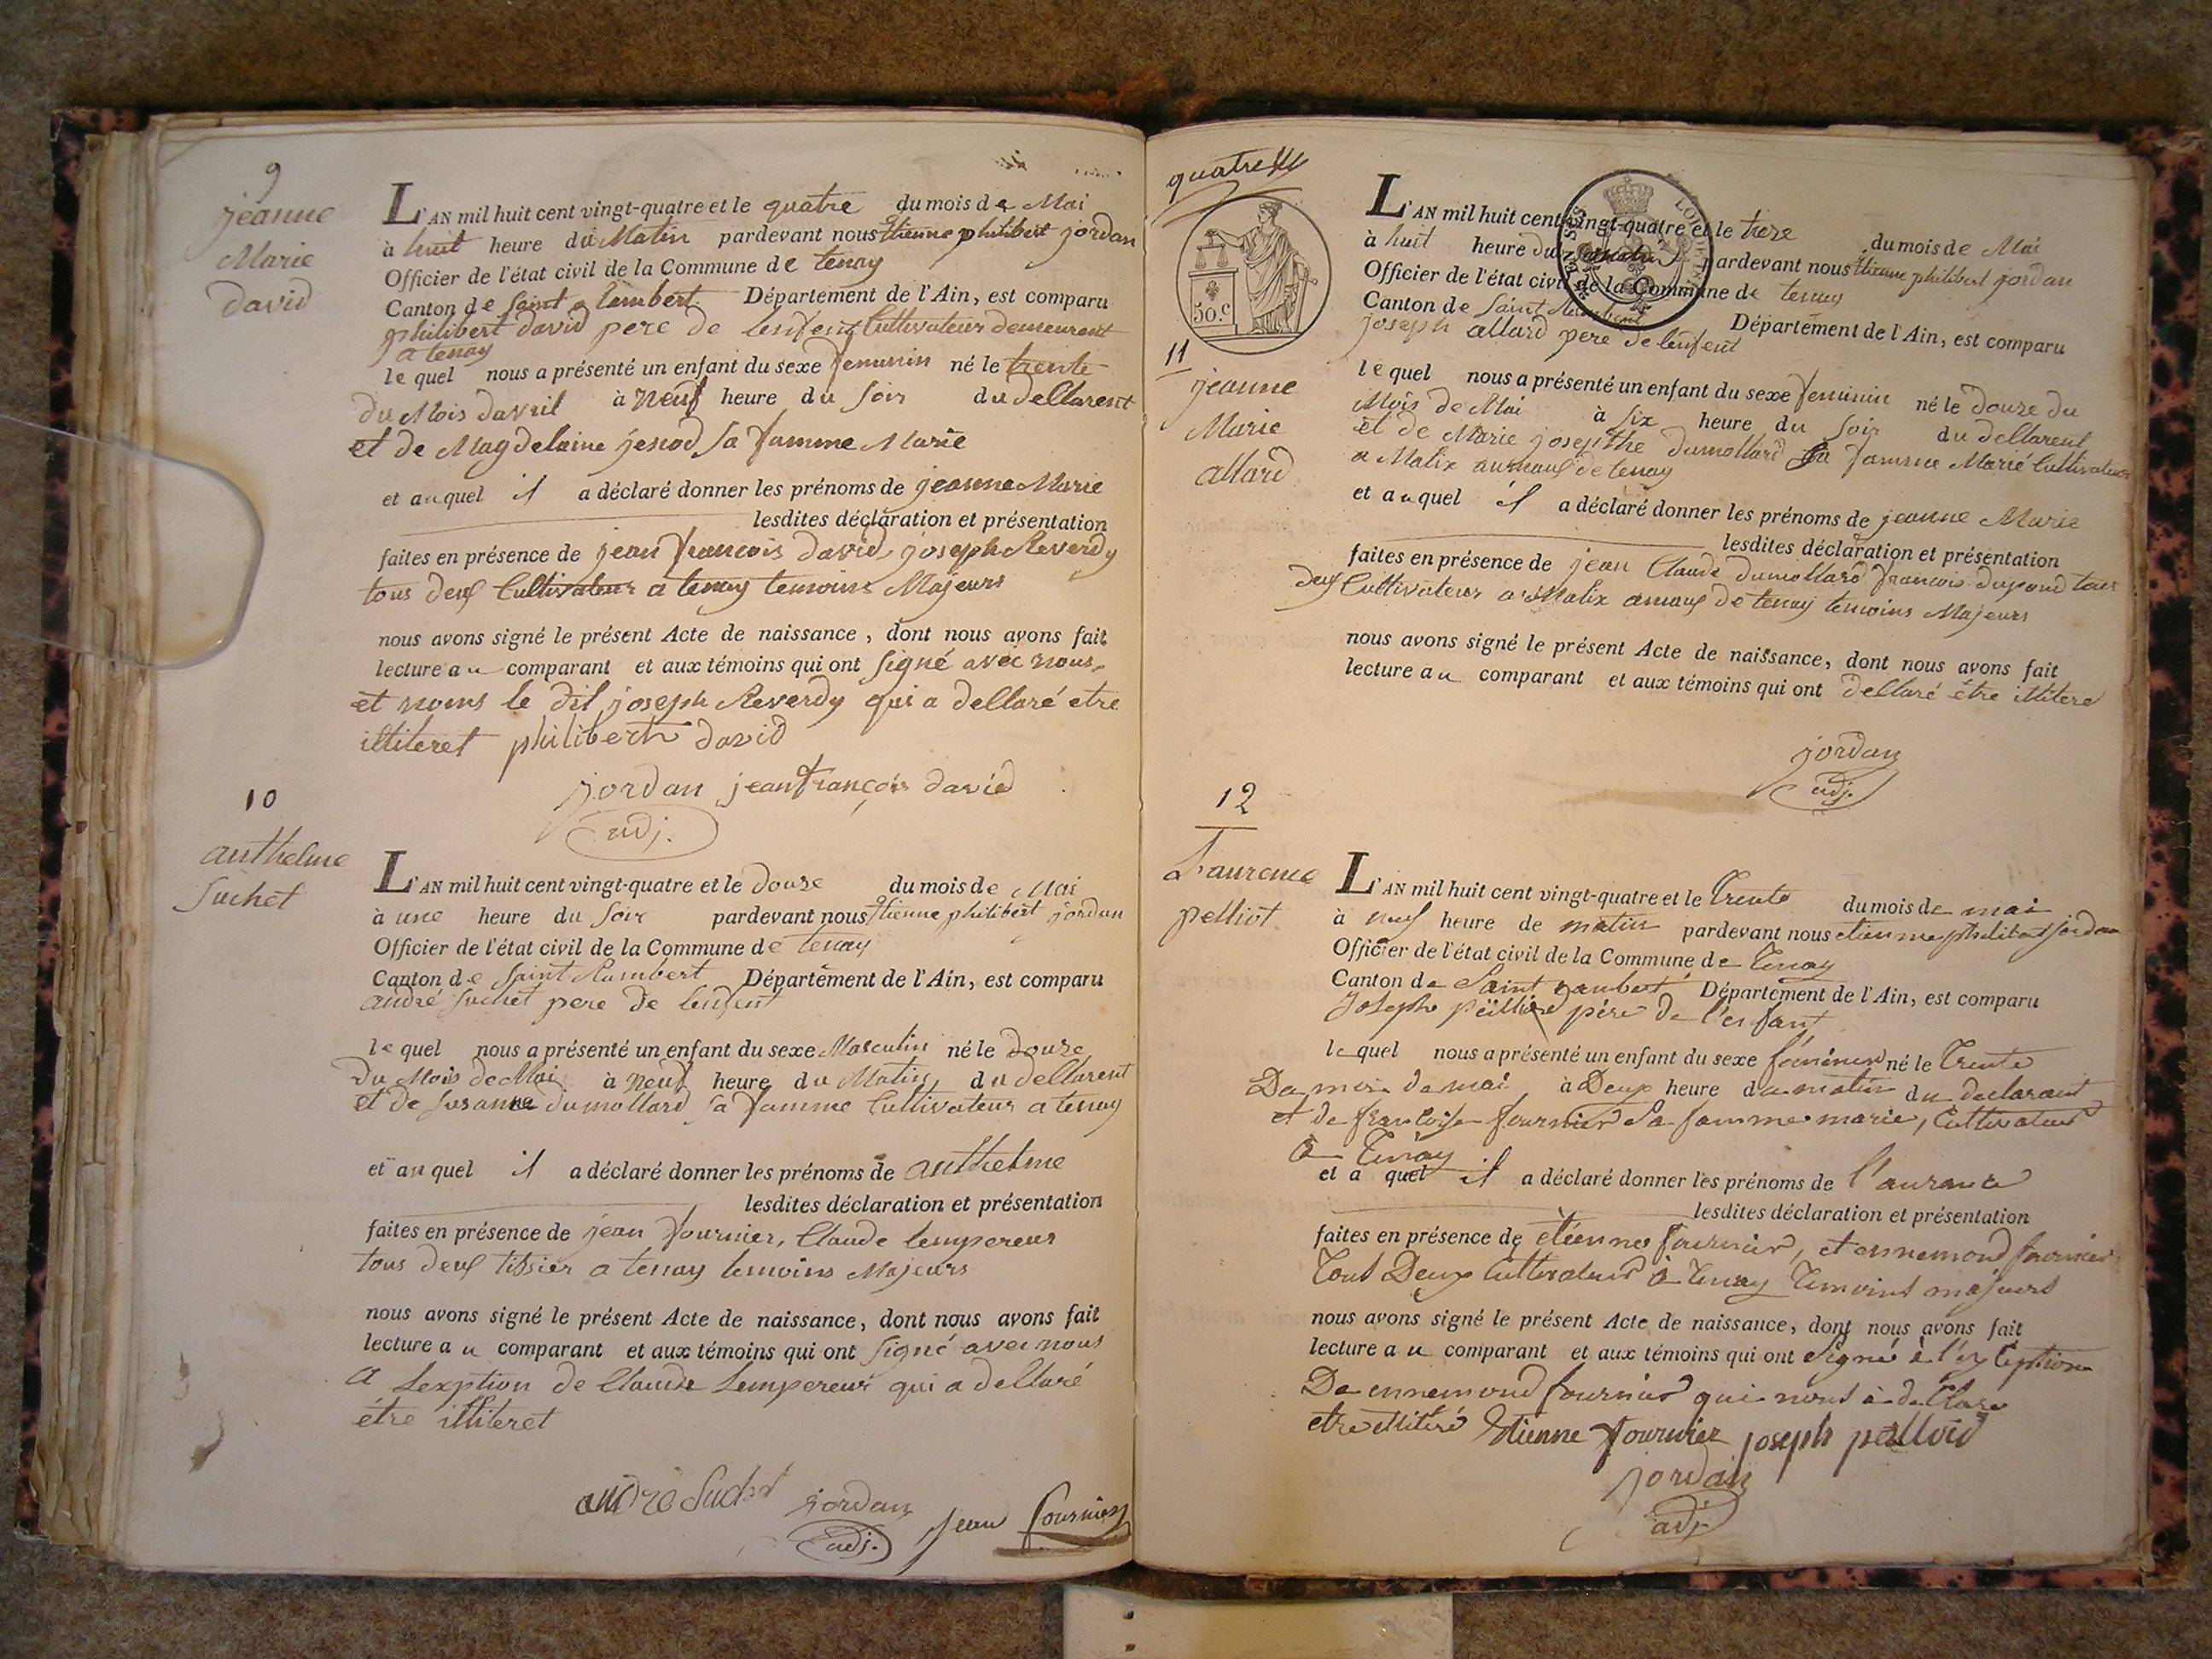 9
jeanne
Marie
david
L'AN mil huit cent vingt-quatre et le quatre du mois de Mai
à huit heure du Matin pardevant nous Etienne philibert jordan
Officier de l'état civil de la Commune de tenay
Canton de Saint rambert Département de l'Ain, est comparu
philibert david pere de lenfent Cultivateur demeurent
a tenay
le quel nous a présenté un enfant du sexe femimin né le trente
du Mois davril à neuf heure du soir du dellarent
et de Magdelaine jenod sa famme Marie
et auquel il a déclaré donner les prénoms de jeanne Marie
lesdites déclaration et présentation
faites en présence de jean francois david joseph Reverdy
tous deux Cultivateur a tenay temoins Majeurs
nous avons signé le présent Acte de naissance, dont nous avons fait
lecture au comparant et aux témoins qui ont signé avec nous
et noms le dit joseph Reverdy qui a dellaré etre
illiteret philiberth david
jordan jean françois david
adj.
10
anthelme
suchet
L'AN mil huit cent vingt-quatre et le douse du mois de Mai
à une heure du soir pardevant nous Etienne philibert jordan
Officier de l'état civil de la Commune de tenay
Canton de Saint Rambert Département de l'Ain, est comparu
andré suchet pere de lenfent
le quel nous a présenté un enfant du sexe Masculin né le douze
du Mois de Mai à neuf heure du Matin, du dellarent
et de susanne dumollard sa famme Cultivateur a tenay
et au quel il a déclaré donner les prénoms de anthelme
lesdites déclaration et présentation
faites en présence de jean fournier, Claude lempereur
tous deux tissier a tenay temoins Majeurs
nous avons signé le présent Acte de naissance, dont nous avons fait
lecture au comparant et aux témoins qui ont signé avec nous
a Lexption de Claude Lempereur qui a dellaré
être illiteret
andré Suchet jordan jean fournier
adj.
quatre
50.c
11
jeanne
Marie
allard
L'AN mil huit cent vingt-quatre et le treze du mois de Mai
à huit heure du pardevant nous Etienne philibert jordan
Officier de l'état civil de la Commune de tenay
Canton de Saint Rambert Département de l'Ain, est comparu
joseph allard pere de lenfent
le quel nous a présenté un enfant du sexe feminin né le douze du
Mois de Mai à six heure du soir du dellarent
et de Marie josepthe dumollard sa famme Marié Cultivateur
a Malix aumaux de tenay
et auquel il a déclaré donner les prénoms de jeanne Marie
lesdites déclaration et présentation
faites en présence de jean Claude dumollard francois dupond tous
deux Cultivateur a Malix amaux de tenay temoins Majeurs
nous avons signé le présent Acte de naissance, dont nous avons fait
lecture au comparant et aux témoins qui ont dellaré être illitere
jordan
adj.
12
Laurence
pelliot
L'AN mil huit cent vingt-quatre et le Trente du mois de mai
à neuf heure de matin pardevant nous etienne philibert jordan
Officier de l'état civil de la Commune de Tenay
Canton de Saint rambert Département de l'Ain, est comparu
Joseph père de l'enfant
le quel nous a présenté un enfant du sexe né le Trente
Du mois de mai à Deux heure du matin du declarant
et de françoise fournier Sa famme marie, Cultivateur
à Tenay
et a quel il a déclaré donner les prénoms de l'aurance
lesdites déclaration et présentation
faites en présence de etienne fournier, et ennemond fournier
Tout Deux Cultivateur à Tenay Temoins majeurs
nous avons signé le présent Acte de naissance, dont nous avons fait
lecture au comparant et aux témoins qui ont Signé à l'exception
De ennemond fournier qui nous à declaré
etre Etienne fournier joseph pelloid
jordan
adj.